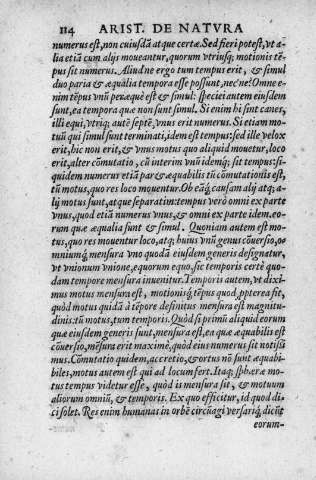 114 ARIST. DE NATVRA
numerus est, non cuiusdã atque certæ. Sed fieri potest, vt a-
lia etiã cum alijs moueantur, quorum vtriusq; motionis tẽ-
pus sit numerus. Aliud'ne ergo tum tempus erit, & simul
duo paria & æqualia tempora esse possunt, nec'ne? Omne e-
nim tẽpus vnũ peræquè est & simul: speciei autem eiusdem
sunt, ea tempora quæ non sunt simul. Si enim hi sint canes,
illi equi, vtriq; autẽ septẽ, vnus erit numerus. Si etiam mo-
tuũ qui simul sunt terminati, idem est tempus: sed ille velox
erit, hic non erit, & vnus motus quo aliquid mouetur, loco
erit, alter cõmutatio, cũ interim vnũ idemq; sit tempus: si-
quidem numerus etiã par & æquabilis tũ cõmutationis est,
tũ motus, quo res loco mouentur. Ob eãq́; causam alij atq; a-
lij motus sunt, atque separatim: tempus verò omni ex parte
vnus, quod etiã numerus vnus, & omni ex parte idem. eo-
rum quæ æqualia sunt & simul. Quoniam autem est mo-
tus, quo res mouentur loco, atq; huius vnũ genus cõuersio, o-
mniumq́; mensura vno quodã eiusdem generis designatur,
vt vnionum vnione, equorum equo, sic temporis certè quo-
dam tempore mensura inuenitur. Temporis autem, vt dixi-
mus motus mensura est, motionisq́; tẽpus quod ꝓpterea fit,
quòd motus quidã à tẽpore definitus mensura est magnitu-
dinis: tũ motus, tum temporis. Quòd si primũ aliquid eorum
quæ eiusdem generis sunt, mensura est, ea quæ æquabilis est
cõuersio, mẽsura erit maximè, quòd eius numerus sit notissi-
mus. Cõmutatio quidem, accretio, & ortus nõ sunt æquabi-
biles, motus autem est qui ad locum fert. Itaq; sphæræ mo-
tus tempus videtur esse, quòd is mensura sit, & motuum
aliorum omniũ, & temporis. Ex quo efficitur, id quod di-
ci solet. Res enim humanas in orbẽ circũagi versariq́; dicũt
eorum-